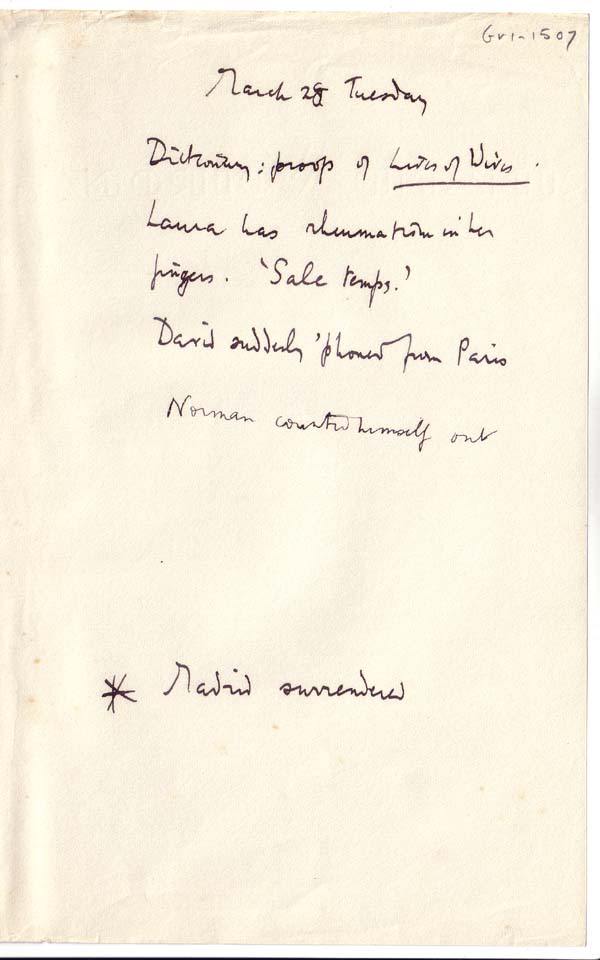 Gv1-1507
March 28 Tuesday
Dictionary: proofs of Lives of Wives.
Laura has rheumatism in her
fingers. 'Sale temps.'
David suddenly 'phoned from Paris
Norman counted himself out
* Madrid surrendered